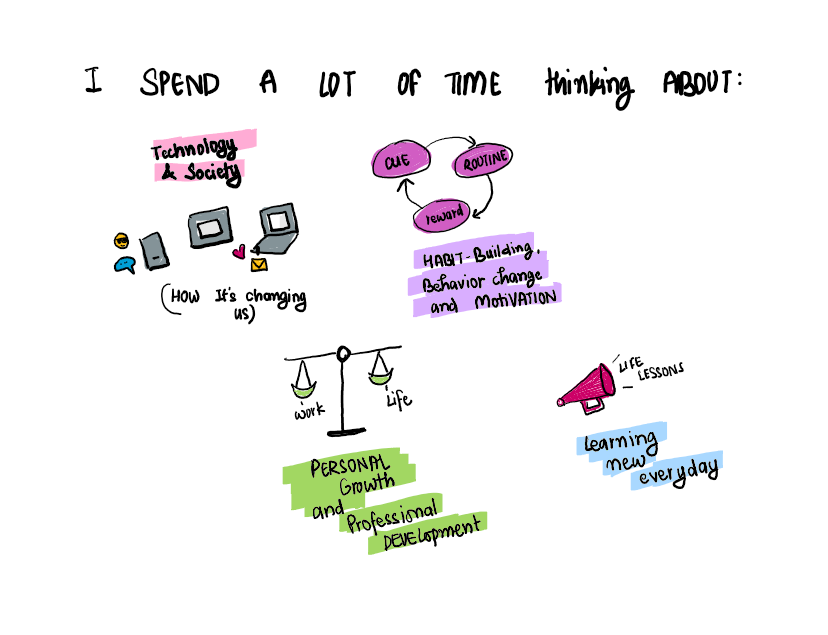 I SPEND A LOT OF TIME thinking ABOUT:
Technology
& Society
(HOW It's changing
us)
CUE
ROUTINE
reward
HABIT-Building,
Behavior change
and MotiVATION
work
Life
PERSONAL
Growth
and
Professional
DEVELopment
LIFE
LESSONS
Learning
new
everyday